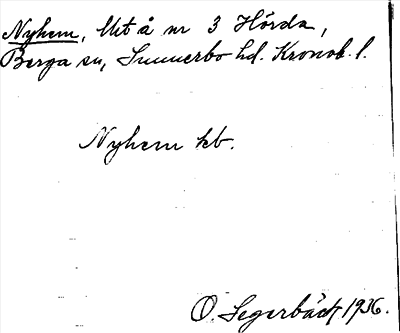 Nyhem, Utå nr 3 Hörda,
Berga sn, Sunnerbo hd. Kronob. l.
Nyhem kb.
O. Segerbäck 1936.